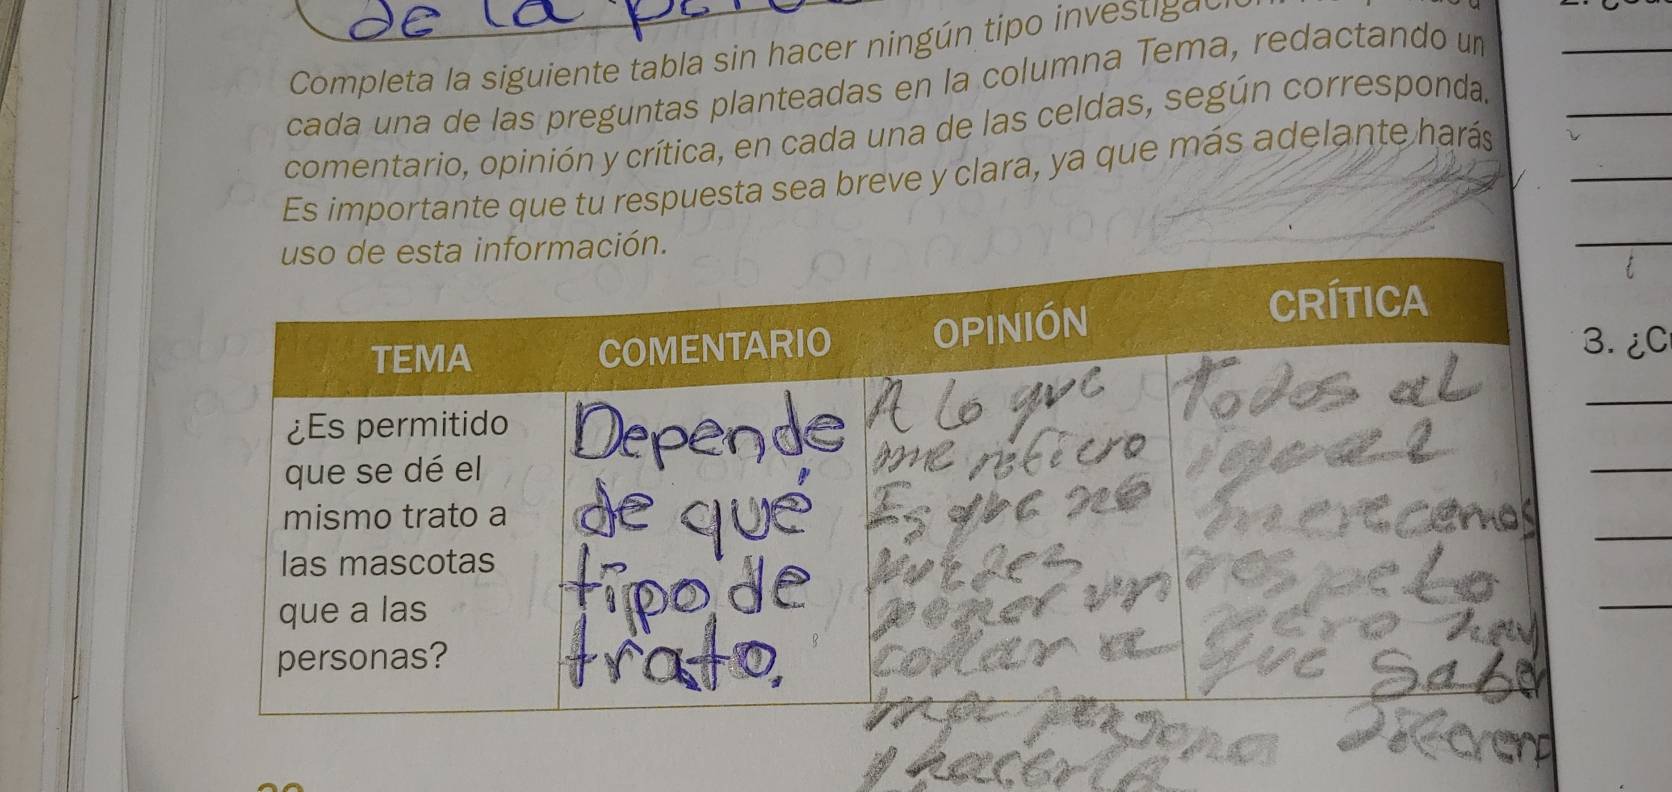 de la
Completa la siguiente tabla sin hacer ningún tipo
cada una de las preguntas planteadas en la columna Tema, redactando un
comentario, opinión y crítica, en cada una de las celdas, según corresponda.
Es importante que tu respuesta sea breve y clara, ya que más adelante harás
uso de esta información.
TEMA COMENTARIO OPINIÓN CRÍTICA
¿Es permitido
que se dé el
mismo trato a
las mascotas
que a las
personas?
Depende
de qué
tipo de
trato.
A lo que
me reficro
Es que no
puedes
poner un
collar a
persona
hacerla
Todos al
igual
merecemos
respeto
pero hay
que saber
3. ¿C